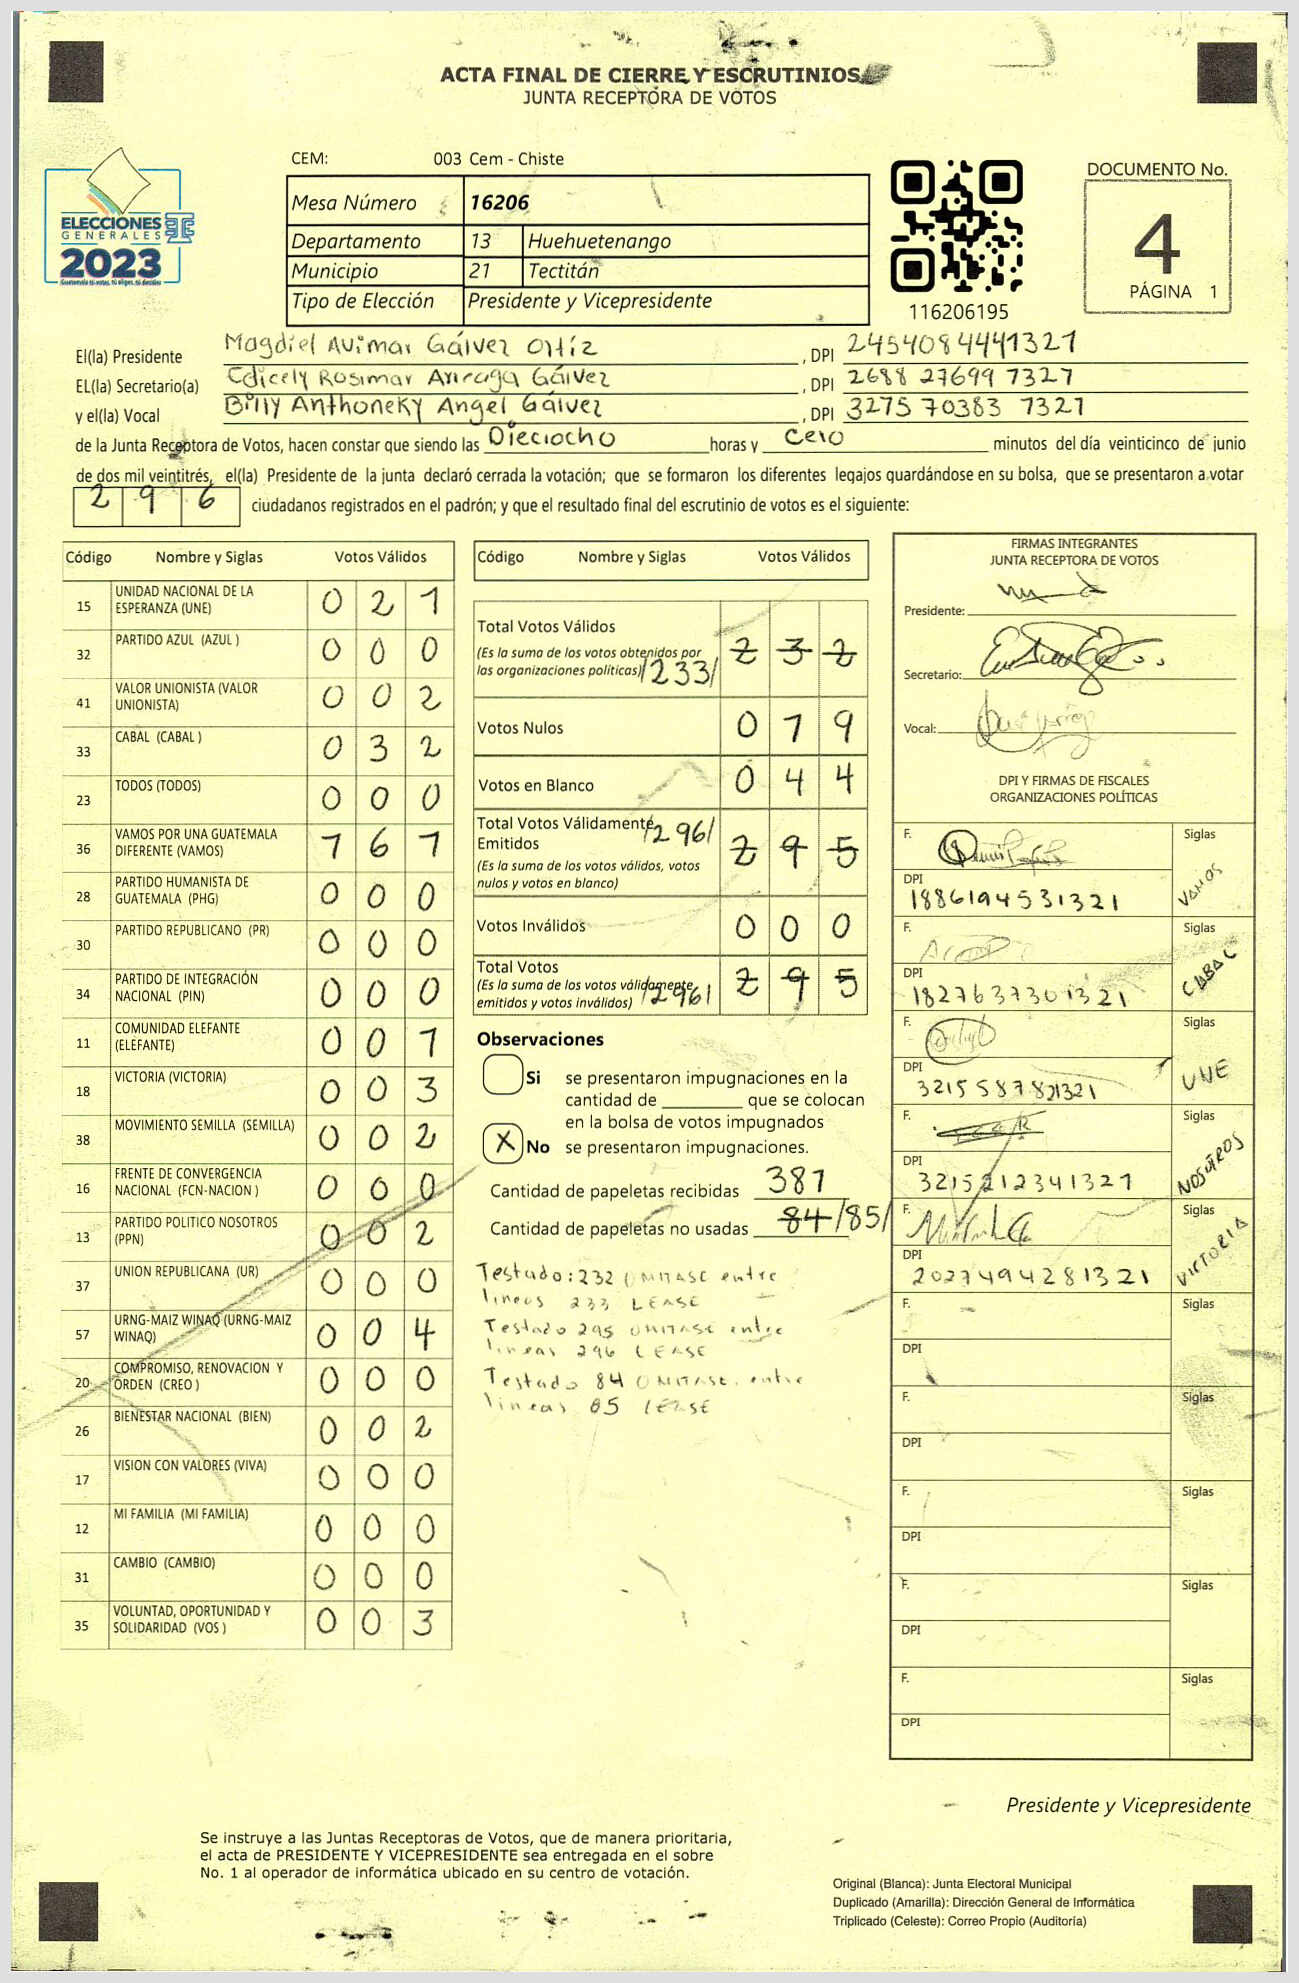 ACTA FINAL DE CIERRE Y ESCRUTINIOS
JUNTA RECEPTORA DE VOTOS
ELECCIONES
GENERALES
2023
CEM: 003 Cem - Chiste
Mesa Número 16206
Departamento 13 Huehuetenango
Municipio 21 Tectitán
Tipo de Elección Presidente y Vicepresidente
116206195
DOCUMENTO No.
4
PÁGINA 1
El(la) Presidente Magdiel Avimar Gálvez Ortíz , DPI 2454084441321
EL(la) Secretario(a) Edicely Rosimar Arreaga Gálvez , DPI 2688 27699 1321
y el(la) Vocal Billy Anthoneky Angel Gálvez , DPI 3275 70383 1321
de la Junta Receptora de Votos, hacen constar que siendo las Dieciocho horas y Cero minutos del día veinticinco de junio
de dos mil veintitrés, el(la) Presidente de la junta declaró cerrada la votación; que se formaron los diferentes legajos guardándose en su bolsa, que se presentaron a votar
2 9 6 ciudadanos registrados en el padrón; y que el resultado final del escrutinio de votos es el siguiente:
Código Nombre y Siglas Votos Válidos
15 UNIDAD NACIONAL DE LA ESPERANZA (UNE) 0 2 1
32 PARTIDO AZUL (AZUL ) 0 0 0
41 VALOR UNIONISTA (VALOR UNIONISTA) 0 0 2
33 CABAL (CABAL ) 0 3 2
23 TODOS (TODOS) 0 0 0
36 VAMOS POR UNA GUATEMALA DIFERENTE (VAMOS) 1 6 1
28 PARTIDO HUMANISTA DE GUATEMALA (PHG) 0 0 0
30 PARTIDO REPUBLICANO (PR) 0 0 0
34 PARTIDO DE INTEGRACIÓN NACIONAL (PIN) 0 0 0
11 COMUNIDAD ELEFANTE (ELEFANTE) 0 0 1
18 VICTORIA (VICTORIA) 0 0 3
38 MOVIMIENTO SEMILLA (SEMILLA) 0 0 2
16 FRENTE DE CONVERGENCIA NACIONAL (FCN-NACION ) 0 0 0
13 PARTIDO POLITICO NOSOTROS (PPN) 0 0 2
37 UNION REPUBLICANA (UR) 0 0 0
57 URNG-MAIZ WINAQ (URNG-MAIZ WINAQ) 0 0 4
20 COMPROMISO, RENOVACION Y ORDEN (CREO ) 0 0 0
26 BIENESTAR NACIONAL (BIEN) 0 0 2
17 VISION CON VALORES (VIVA) 0 0 0
12 MI FAMILIA (MI FAMILIA) 0 0 0
31 CAMBIO (CAMBIO) 0 0 0
35 VOLUNTAD, OPORTUNIDAD Y SOLIDARIDAD (VOS ) 0 0 3
Código Nombre y Siglas Votos Válidos
Total Votos Válidos
(Es la suma de los votos obtenidos por
las organizaciones políticas) /233/ 2 3 2
Votos Nulos 0 1 9
Votos en Blanco 0 4 4
Total Votos Válidamente /296/
Emitidos 2 9 5
(Es la suma de los votos válidos, votos
nulos y votos en blanco)
Votos Inválidos 0 0 0
Total Votos
(Es la suma de los votos válidamente
emitidos y votos inválidos) /296/ 2 9 5
Observaciones
Si se presentaron impugnaciones en la
cantidad de ________ que se colocan
en la bolsa de votos impugnados
X No se presentaron impugnaciones.
Cantidad de papeletas recibidas 381
Cantidad de papeletas no usadas 84 /85/
Testado: 232 OMITASE entre
lineas 233 LEASE
Testado 295 OMITASE entre
lineas 296 LEASE
Testado 84 OMITASE entre
lineas 85 LEASE
FIRMAS INTEGRANTES
JUNTA RECEPTORA DE VOTOS
Presidente:
Secretario:
Vocal:
DPI Y FIRMAS DE FISCALES
ORGANIZACIONES POLÍTICAS
F. Siglas VAMOS
DPI 1886194531321
F. Siglas CABAL
DPI 1827637301321
F. Siglas UNE
DPI 3215587821321
F. Siglas NOSOTROS
DPI 3215212341321
F. Siglas VICTORIA
DPI 2027494281321
F. Siglas
DPI
F. Siglas
DPI
F. Siglas
DPI
F. Siglas
DPI
F. Siglas
DPI
Presidente y Vicepresidente
Se instruye a las Juntas Receptoras de Votos, que de manera prioritaria,
el acta de PRESIDENTE Y VICEPRESIDENTE sea entregada en el sobre
No. 1 al operador de informática ubicado en su centro de votación.
Original (Blanca): Junta Electoral Municipal
Duplicado (Amarilla): Dirección General de Informática
Triplicado (Celeste): Correo Propio (Auditoría)